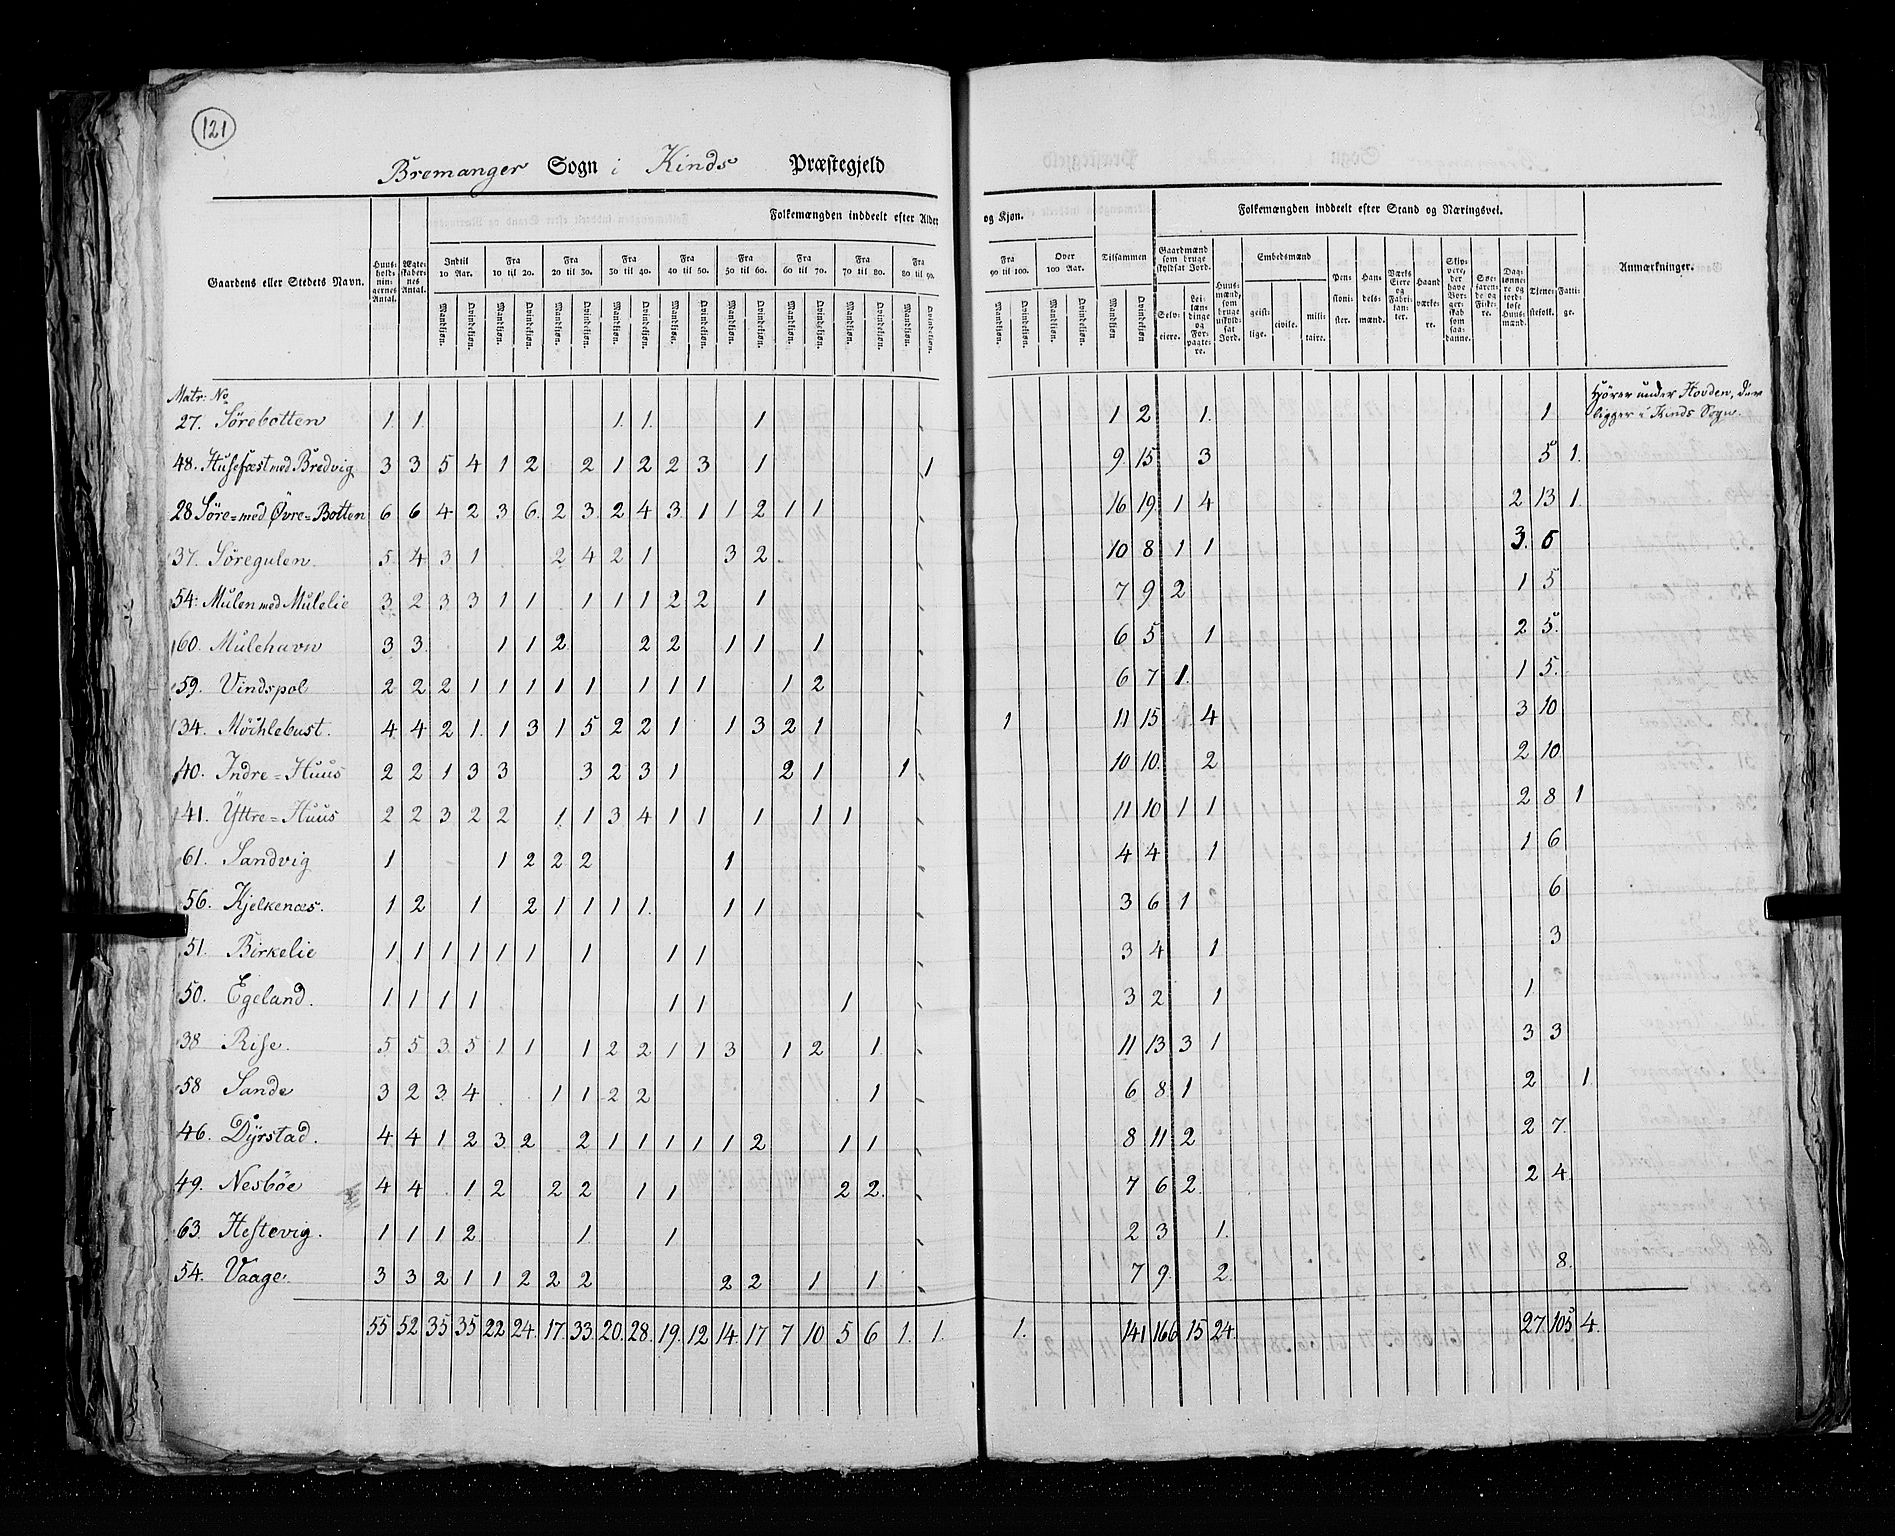 121
Bremanger Sogn i Kinds Præstegjeld
Gaardens eller Stedets Navn. Huus-holdnin-gernes Antal. Ægte-skaber-nes Antal. Folkemængden inddeelt efter Alder og Kjøn. Tilsammen Folkemængden inddeelt efter Stand og Næringsvei. Anmærkninger.
Indtil 10 Aar. Fra 10 til 20. Fra 20 til 30. Fra 30 til 40. Fra 40 til 50. Fra 50 til 60. Fra 60 til 70. Fra 70 til 80. Fra 80 til 90. Fra 90 til 100. Over 100 Aar.
Mandkjøn. Qvindekjøn.
Gaardmænd som bruge skyldsat Jord. Selv-eiere. Lei-læn-dinge og For-pagte-re. Huus-mænd, som bruge uskyld-sat Jord. Embedsmænd geist-lige. civile. mili-taire. Pen-sioni-ster. Han-dels-mænd. Værks Eiere og Fabri-kan-ter. Haand værke-re. Skip-pere, der have Bor-ger-skab som saa-danne. Søe-farende og Fiske-re. Dag-lønne-re og jord-løse Huus-mænd. Tjene-stefolk. Fatti-ge.
Matr: No
27. Sørebotten 1. 1. 1. 1. 1 1 2 1. 1 Hører under Hovden, der
ligger i Kinds Sogn.
48. Husefæst med Bredvig 3 3 5 4 1 2 2 1 2 2 3 1 1 9. 15 3 5 1.
28 Søre= med Øvre=Botten 6 6 4 2 3 6. 2 3. 2 4 3. 1 1 2 1 1 16 19 1 4 2 13 1.
37. Søregulen. 5. 4 3 1 2 4 2 1 3 2 10 8 1 1 3. 6
54. Mulen med Mulelie 3 2 3 3 1 1 1 1 1 2 2 1 7 9 2 1 5
60. Mulehavn 3 3. 1 1 2 2 2 1 1 1 6 5 1 2 5.
59. Vindspol 2 2 2 1 1 1 1 1 1 1 1 1 2 6 7 1. 1 5.
34. Møchlebust. 4 4 2 1. 1 3 1 5 2 2 1 1 3 2 1 1 11 15 4 3 10
40. Indre=Huus 2 2 1 3 3 3 2 3 1 2 1 1 10 10. 2 2 10
41. Yttre=Huus 2 2 3 2 2 1 1 3 4 1 1 1 1 1 11 10 1 1 2 8 1
61. Sandvig 1 1 2 2 2 1 4 4 1 1 6
56. Kjelkenæs. 1 2 1 2 1 1 1 1. 1 1 3 6 1 6
51. Birkelie 1 1 1 1 1 1 1 1 1 3 4 1 3
50. Egeland. 1 1 1 1 1 1 1 3 2 1 1
38 Rise. 5 5 3. 5 1 1 1 2 2 1 1 3 1 2 1. 11 13 3 1 3 3
58 Sande 3 2 3. 4 1 1 2 2 1 6 8 1 2 1
46. Dyrstad. 4 4 1 2 3. 2 2 1 1 1 1 1 2 1 1 8 11 2 2 7.
49. Nesbøe 4 4 1 2 2 2 1 1 2 2. 7 6 2 2 4.
63. Hestevig. 1 1 1 2 1 1 2 3 1.
54. Vaage. 3 3 2 1 1 2 2 2 2 2 1 1 7 9. 2. 8.
55 52 35 35 22 24. 17. 33. 20. 28. 19. 12 14. 17 7 10 5 6 1. 1. 1. 141 166 15 24. 27. 105 4.